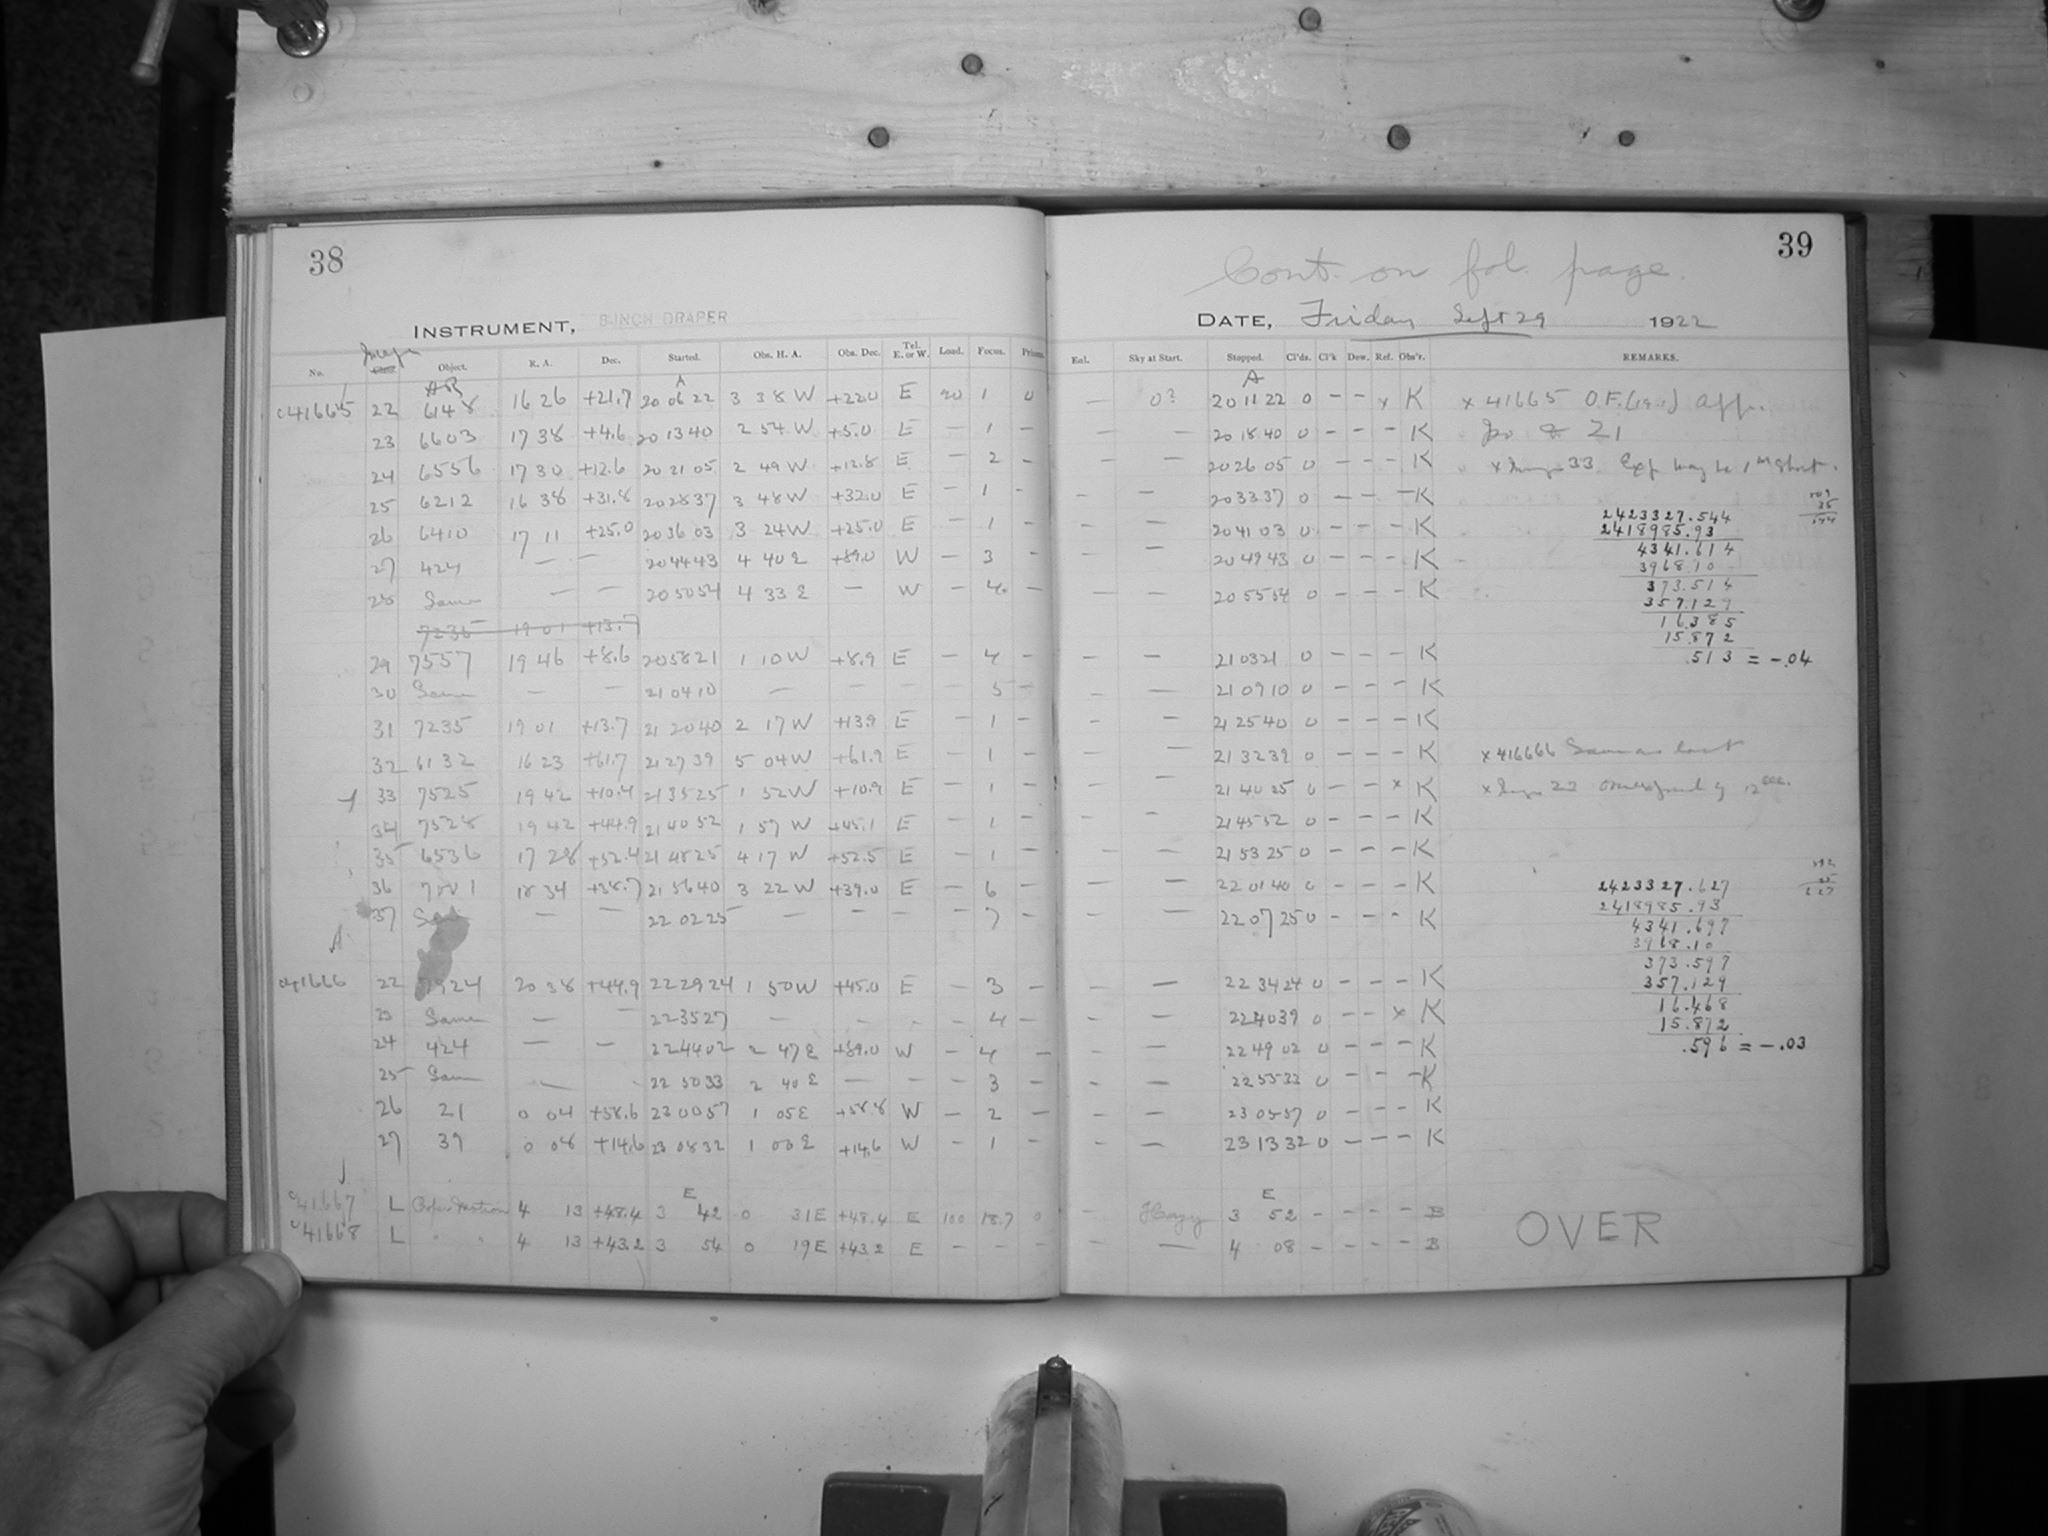 38
39
Cont. on fol. page.
INSTRUMENT, 8-INCH DRAPER
DATE, Friday Sept 29 1922
No. Image Object. R. A. Dec. Started. Obs. H. A. Obs. Dec. Tel. E. or W. Load. Focus. Prisms. Enl. Sky at Start. Stopped. Cl'ds. Cl'k Dew. Ref. Obs'r. REMARKS.
HR A A
c41665 22 6148 16 26 +21.7 20 06 22 3 38 W +22.0 E 20 1 0 — 0? 20 11 22 0 – – x K x 41665 O.F. App.
23 6603 17 38 +4.6 20 13 40 2 54 W +5.0 E – 1 – – – 20 18 40 0 – – – K 21
24 6556 17 30 +12.6 20 21 05 2 49 W +12.8 E – 2 – – – 20 26 05 0 – – – K x Image 33 Exp may be 1m short.
25 6212 16 38 +31.8 20 28 37 3 48 W +32.0 E – 1 – – – 20 33 37 0 – – – K
26 6410 17 11 +25.0 20 36 03 3 24 W +25.0 E – 1 – – – 20 41 03 0 – – – K
27 424 – – 20 44 43 4 40 E +89.0 W – 3 – – 20 49 43 0 – – – K
28 Same – – 20 50 54 4 33 E – W – 4 – – – 20 55 54 0 – – – K
7235 19 01 +13.7
29 7557 19 46 +8.6 20 58 21 1 10 W +8.9 E – 4 – – – 21 03 21 0 – – – K
30 Same – – 21 04 10 – – – – 5 – – – 21 09 10 0 – – – K
31 7235 19 01 +13.7 21 20 40 2 17 W +13.9 E – 1 – – – 21 25 40 0 – – – K
32 6132 16 23 +61.7 21 27 39 5 04 W +61.9 E – 1 – – – 21 32 39 0 – – – K x 41666 Same as last
33 7525 19 42 +10.4 21 35 25 1 52 W +10.9 E – 1 – – – 21 40 25 0 – – x K x Image 23 12 sec.
34 7528 19 42 +44.9 21 40 52 1 57 W +45.1 E – 1 – – – 21 45 52 0 – – – K
35 6536 17 28 +52.4 21 48 25 4 17 W +52.5 E – 1 – – – 21 53 25 0 – – – K
36 7001 18 34 +38.7 21 56 40 3 22 W +39.0 E – 6 – – – 22 01 40 0 – – – K
37 22 02 25 – – – – 7 – – – 22 07 25 0 – – – K
c41666 22 7924 20 38 +44.9 22 29 24 1 50 W +45.0 E – 3 – – – 22 34 24 0 – – – K
23 Same – – 22 35 27 – – – – 4 – – – 22 40 39 0 – – x K
24 424 – – 22 44 02 2 47 E +89.0 W – 4 – – – 22 49 02 0 – – – K
25 Same – – 22 50 33 2 40 E – – – 3 – – – 22 55 33 0 – – – K
26 21 0 04 +58.6 23 00 57 1 05 E +58.8 W – 2 – – – 23 05 57 0 – – – K
27 39 0 08 +14.6 23 08 32 1 00 E +14.6 W – 1 – – – 23 13 32 0 – – – K
E E
c41667 L Proper Motion 4 13 +48.4 3 42 0 31 E +48.4 E 100 18.7 0 – Hazy 3 52 – – – – B
c41668 L " " 4 13 +43.2 3 54 0 19 E +43.2 E – – – – 4 08 – – – – B
2423327.544
2418985.93
4341.614
3968.10
373.514
357.129
16.385
15.872
.513 = -.04
2423327.627
2418985.93
4341.697
3968.10
373.597
357.129
16.468
15.872
.596 = -.03
OVER